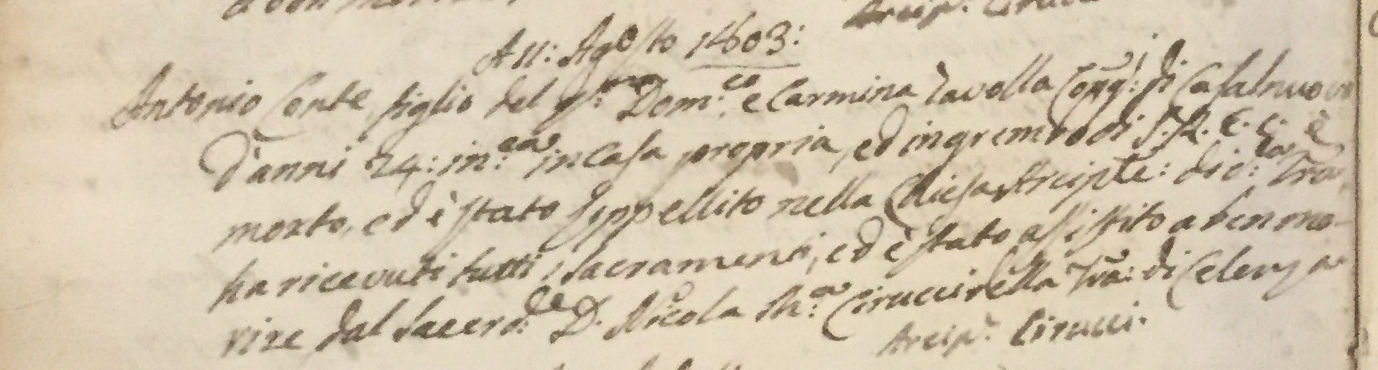 a ben morire
Arcip.e Cirucci
A 11: Agosto 1803:
Antonio Conte figlio del q.m Dom.co e Carmina Tavolla Conyj: di Casalnuovo
d'anni 24: in c.a in Casa propria, ed in grembo di S. R. C. è
morto, ed è stato seppellito nella Chiesa Arcipte: di d.ta Trà
ha ricevuti tutti i sacramenti, ed è stato assistito a ben mo-
rire dal Sacerd.te D. Nicola M.a Cirucci della Trà: di Celenza
Arcip.e Cirucci.